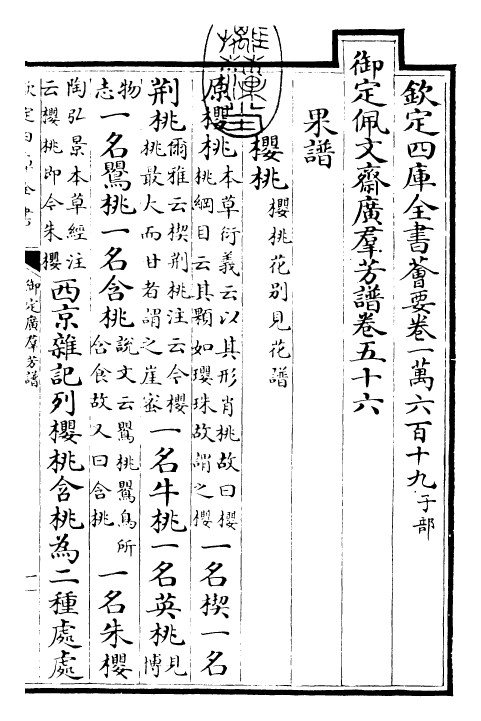 欽定四庫全書薈要卷一萬六百十九子部
御定佩文齋廣羣芳譜卷五十六
果譜
櫻桃櫻桃花別見花譜
原櫻桃本草衍義云以其形肖桃故曰櫻桃綱目云其顆如瓔珠故謂之櫻一名楔一名
荆桃爾雅云楔荆桃注云今櫻桃最大而甘者謂之崖蜜一名牛桃一名英桃見博
物志一名鸎桃一名含桃說文云鸎桃鸎鳥所含食故又曰含桃一名朱櫻
陶弘景本草經注云櫻桃即今朱櫻西京雜記列櫻桃含桃為二種處處
欽定四庫全書
御定廣羣芳譜
一